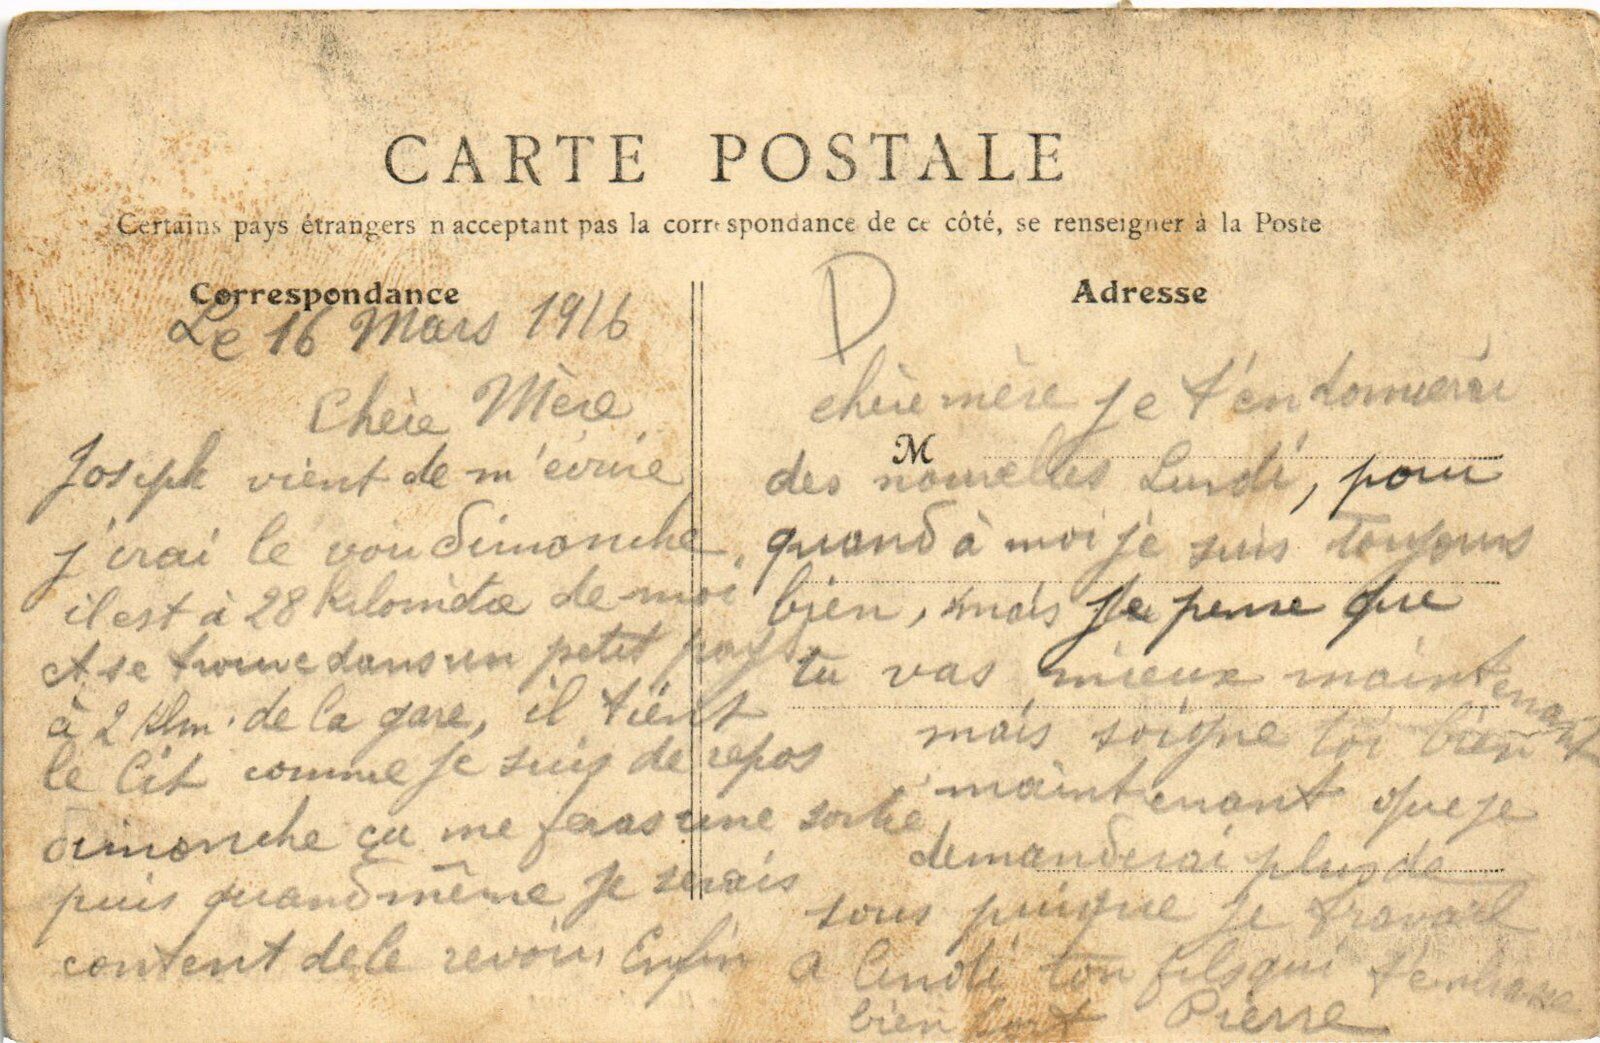 CARTE POSTALE
Certains pays étrangers n'acceptant pas la correspondance de ce côté, se renseigner à la Poste
Correspondance
Le 16 Mars 1916
Chère Mère
Joseph vient de m'écrire
j'irai le voir dimanche,
il est à 28 kilomètre de moi
et se trouve dans un petit pays
à 2 klm. de la gare, il tient
le lit comme je suis de repos
dimanche ça me feras une sortie,
puis quand même je serais
content de le revoir, Enfin
D
Adresse
M
chère mère je t'en donnerai
des nouvelles Lundi, pour
quand à moi je suis toujours
bien, mais je pense que
tu vas mieux maintenant
mais soigne toi bien
maintenant que je
demanderai plus de
sous puisque je travail
a lundi ton fils qui t'embrasse
bien fort Pierre